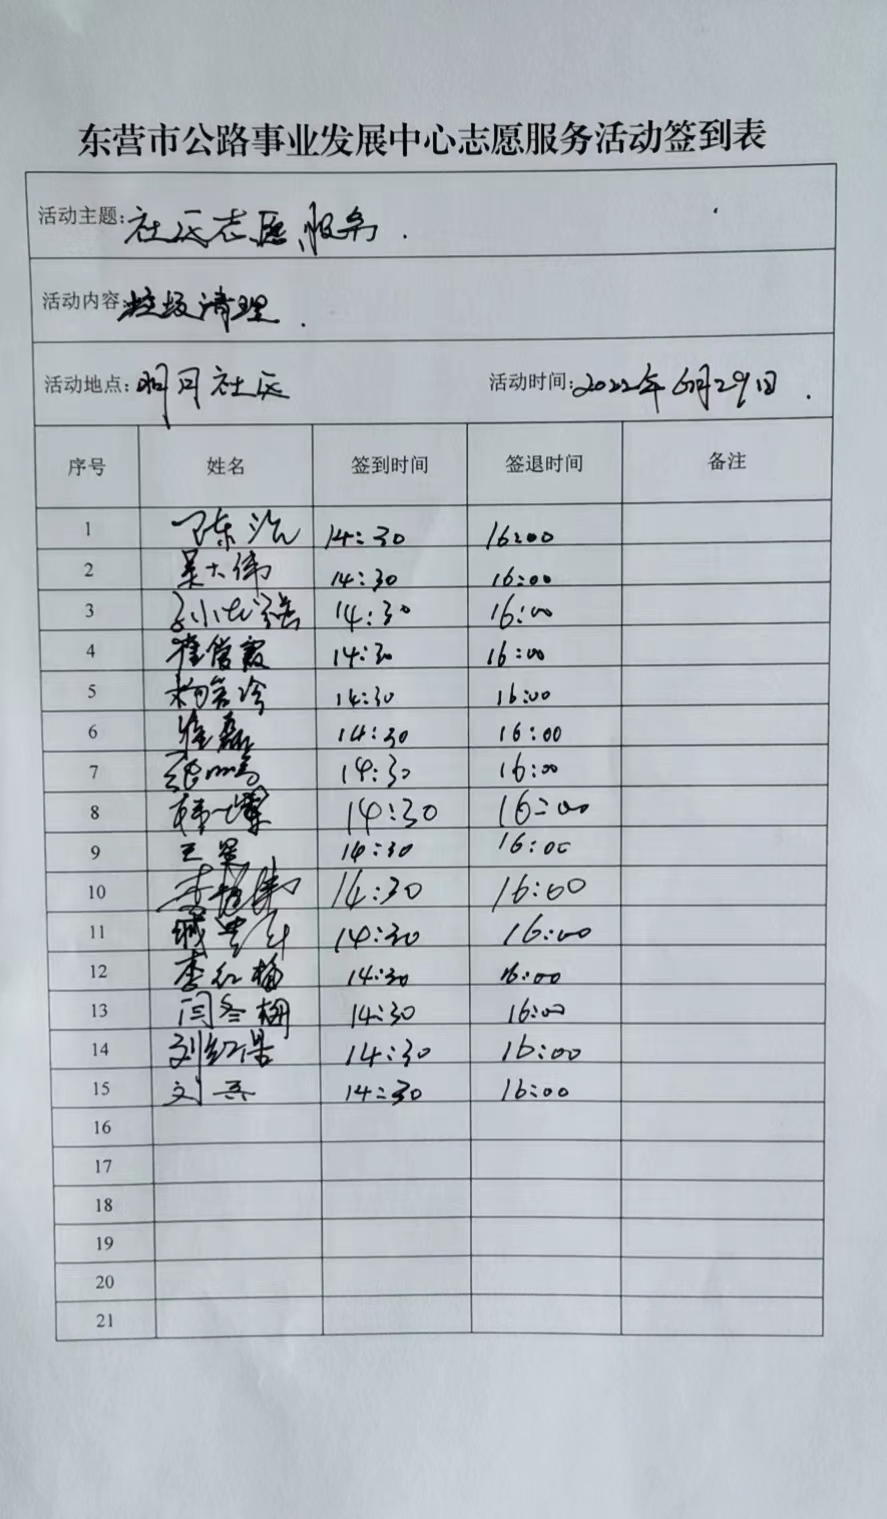 东营市公路事业发展中心志愿服务活动签到表
活动主题: 社区志愿服务.
活动内容: 垃圾清理.
活动地点: 明月社区 活动时间: 2022年6月29日.
序号 姓名 签到时间 签退时间 备注
1 陈浩 14:30 16:00
2 吴大伟 14:30 16:00
3 14:30 16:00
4 崔俊霞 14:30 16:00
5 14:30 16:00
6 崔磊 14:30 16:00
7 张鹏 14:30 16:00
8 14:30 16:00
9 王昊 14:30 16:00
10 14:30 16:00
11 14:30 16:00
12 李红梅 14:30 16:00
13 闫冬梅 14:30 16:00
14 刘红 14:30 16:00
15 刘 14:30 16:00
16
17
18
19
20
21